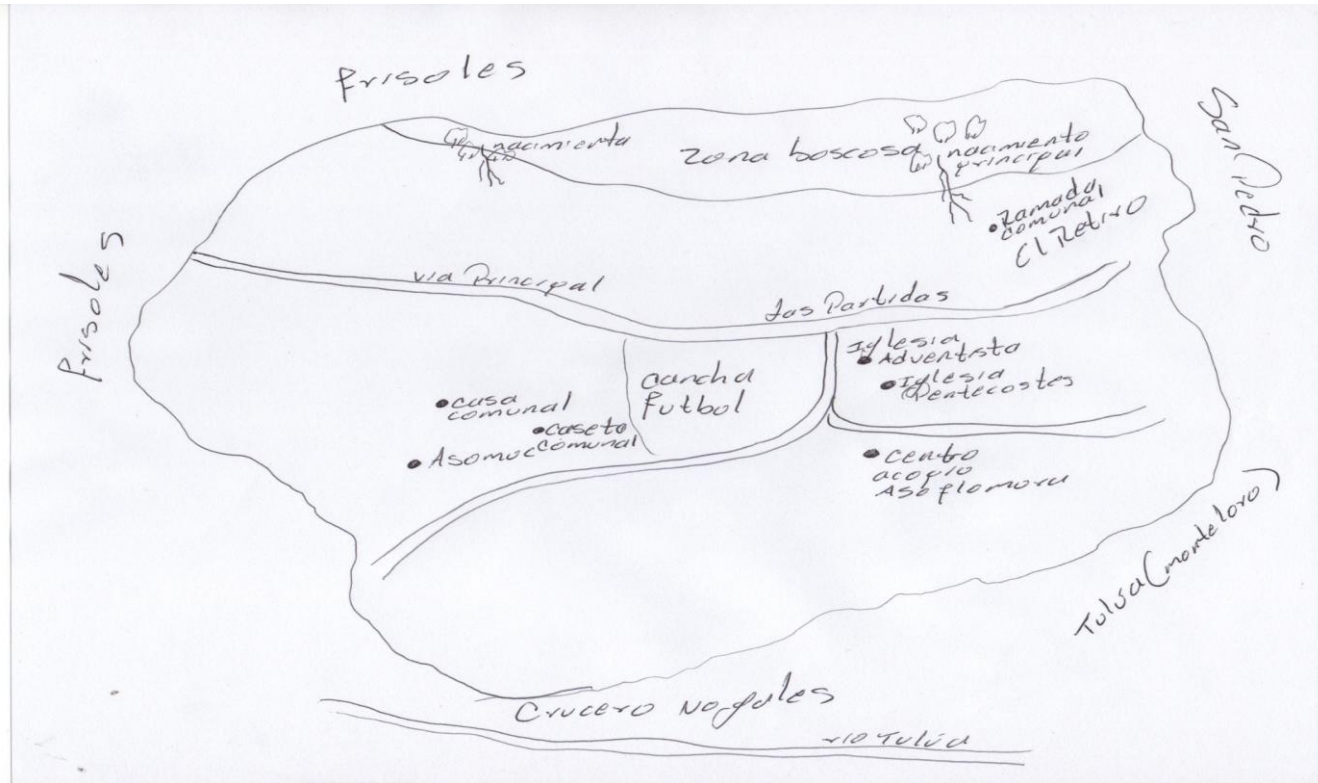 frisoles
San Pedro
nacimiento
zona boscosa
nacimiento
principal
Ramada
comunal
El Retiro
frisoles
via Principal
Las Partidas
Iglesia
Adventista
Iglesia
Pentecostes
cancha
futbol
casa
comunal
caseta
comunal
Asomuc
centro
acopio
Asoflomora
Tulua (monteloro)
Crucero Nogales
rio Tulúa